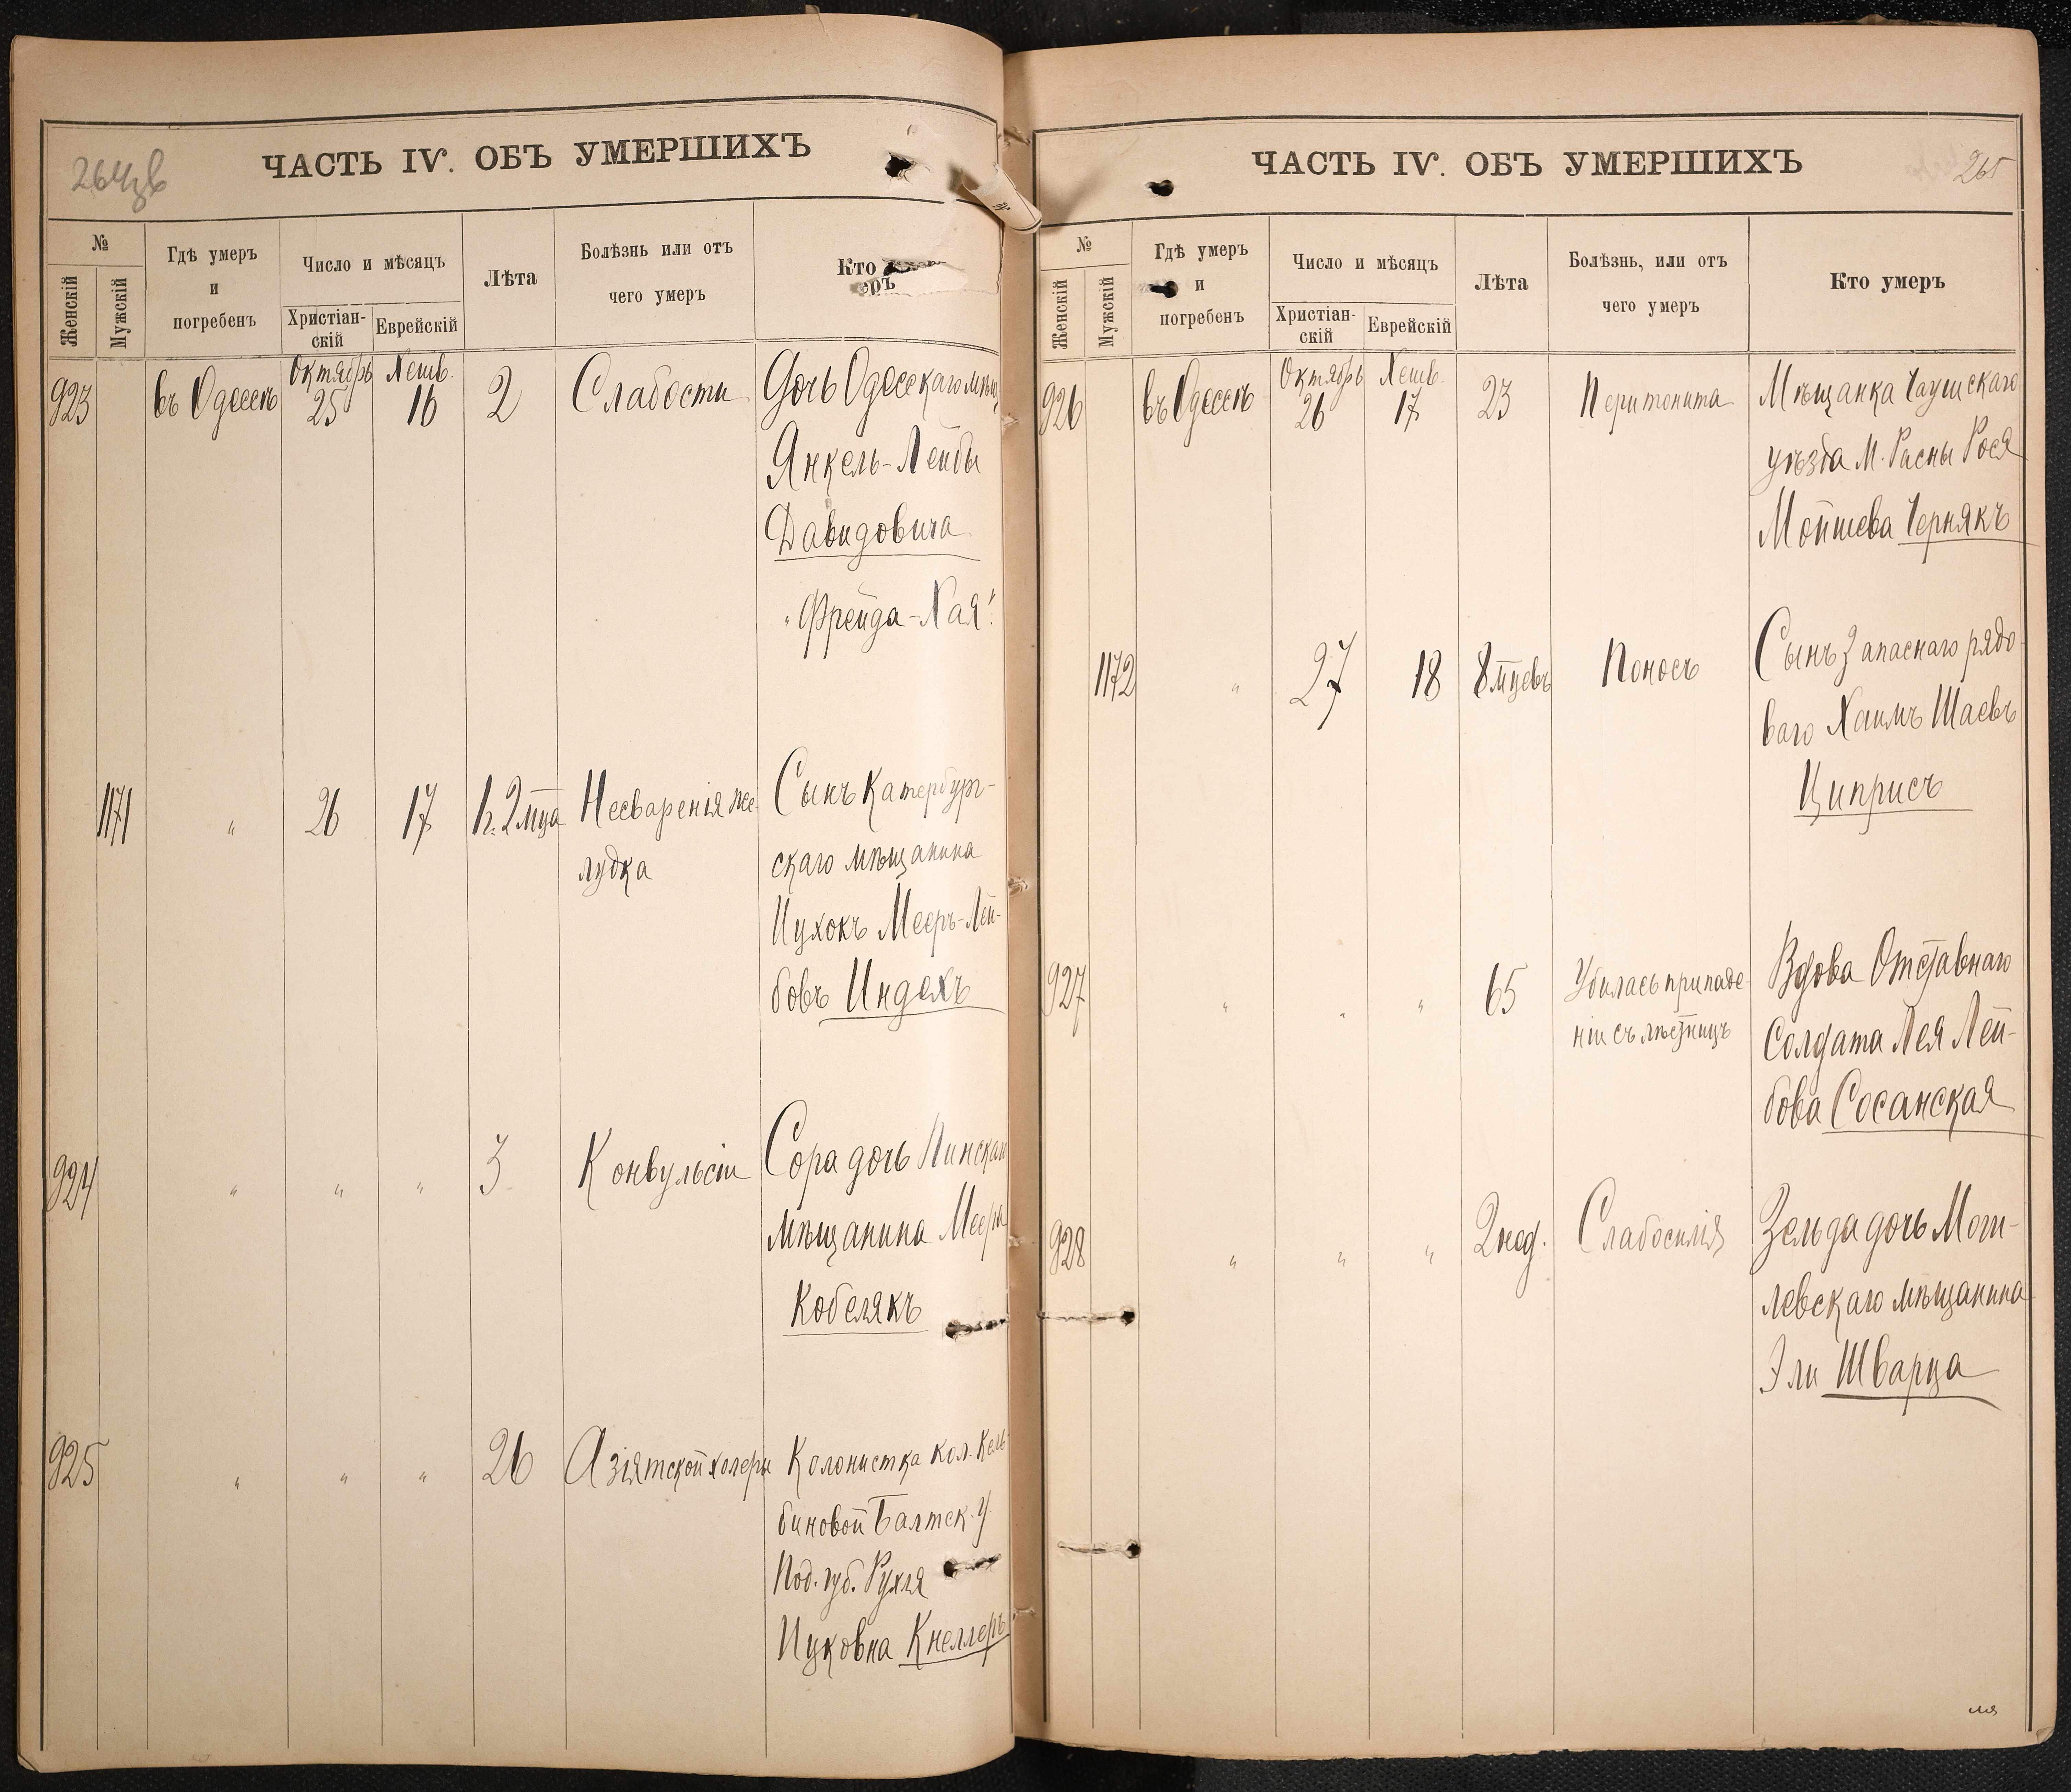 264об
ЧАСТЬ IV. ОБЪ УМЕРШИХЪ
№
Женскій
Мужскій
Гдѣ умеръ
и
погребенъ
Число и мѣсяцъ
Христіан-
скій
Еврейскій
Лѣта
Болѣзнь или отъ
чего умеръ
Кто
еръ
923 въ Одессѣ Октябрь 25 Хешв. 16 2 Слабости Дочь Одесскаго мѣщ.
Янкель-Лейбы
Давидовича
"Фрейда-Хая"
1171 " 26 17 1 г. 2 мца Несваренія же- Сынъ Катербург-
лудка скаго мѣщанина
Ицхокъ Мееръ-Лей-
бовъ Индехъ
924 " " " 3 Конвульсіи Сора дочь Пинскаго
мѣщанина Меера
Кобелякъ
925 " " " 26 Азіятской холеры Колонистка кол.Коль-
биновой Балтск. у.
Под. губ. Рухля
Ицковна Кнеллеръ
265
ЧАСТЬ IV. ОБЪ УМЕРШИХЪ
№
Женскій
Мужскій
Гдѣ умеръ
и
погребенъ
Число и мѣсяцъ
Христіан-
скій
Еврейскій
Лѣта
Болѣзнь, или отъ
чего умеръ
Кто умеръ
926 въ Одессѣ Октябрь 26 Хешв. 17 23 Перитонита Мѣщанка Чаушскаго
уѣзда М. Расны Рося
Мойшева Чернякъ
1172 " 27 18 8 мцевъ Поносъ Сынъ Запаснаго рядо-
ваго Хаимъ Шаевъ
Циприсъ
927 " " " 65 Убилась при паде- Вдова Отставнаго
ніи съ лѣстницъ Солдата Лея Лей-
бова Сосанская
928 " " " 2 нед. Слабосилія Зельда дочь Моги-
левскаго мѣщанина
Эли Шварца